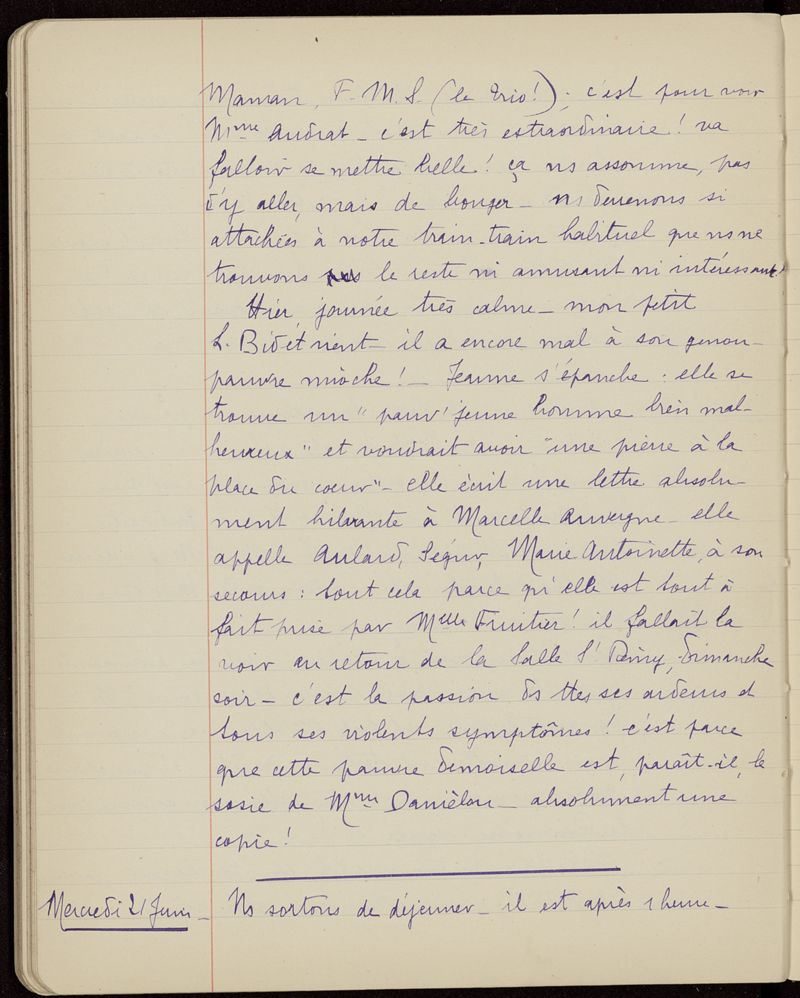 Maman, F. M. S. (le trio!); c'est pour voir
Mme Audrat - c'est très extraordinaire! va
falloir se mettre belle! ça ns assomme, pas
d'y aller, mais de bouger - ns devenons si
attachées à notre train-train habituel que ns ne
trouvons le reste ni amusant ni intéressant!
Hier journée très calme - mon petit
L. Bidét vient - il a encore mal à son genou -
pauvre mioche! - Jeanne s'épanche : elle se
trouve un "pauv' jeune homme bien mal-
heureux" et voudrait avoir "une pierre à la
place du coeur" - elle écrit une lettre absolu-
ment hilarante à Marcelle Auvergne - elle
appelle Aulard, Ségur, Marie Antoinette, à son
secours : tout cela parce qu'elle est tout à
fait prise par Melle Fruitier! il fallait la
voir au retour de la Salle St Rémy, dimanche
soir - c'est la passion ds ttes ses ardeurs et
tous ses violents symptômes! c'est parce
que cette pauvre demoiselle est, paraît-il, le
sosie de Mme Daniélou - absolument une
copie!
Mercredi 21 Juin - Ns sortons de déjeuner - il est après 1 heure -